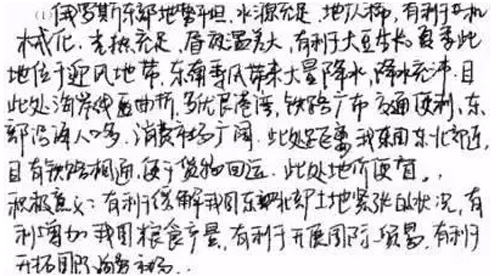 (1) 俄罗斯东部地势平坦,水源充足,地广人稀,有利于机
械化,光热充足,昼夜温差大,有利于大豆生长,夏季此
地位于迎风地带,东南季风带来大量降水,降水充沛.且
此处海岸线曲折,多优良港湾,铁路广布,交通便利,东
部沿海人口多,消费市场广阔.此处距离我国东北部近,
且有铁路相通,便于货物回运.此处地价便宜.,
积极意义:有利于缓解我国东北部土地紧张的状况,有
利增加我国粮食产量,有利于开展国际贸易,有利于
开拓国际消费市场..